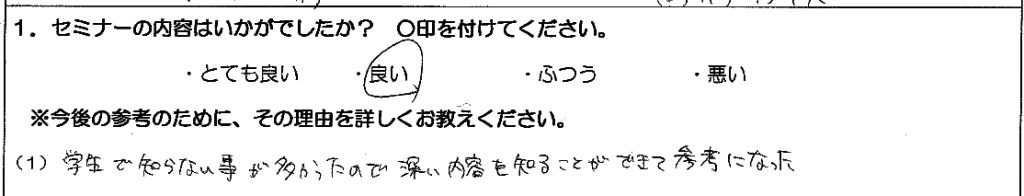 1．セミナーの内容はいかがでしたか？　〇印を付けてください。
・とても良い　・良い　・ふつう　・悪い
※今後の参考のために、その理由を詳しくお教えください。
(1) 学生で知らない事が多かったので深い内容を知ることができて参考になった